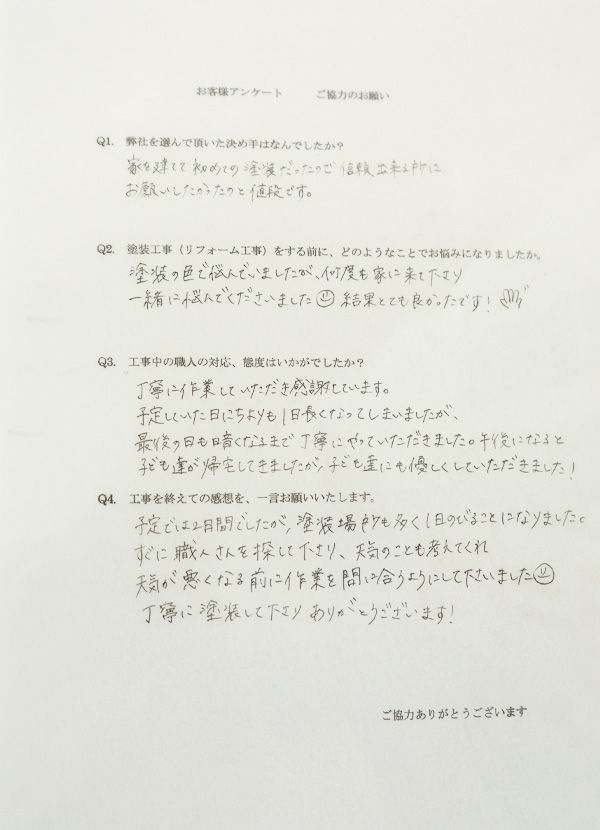 お客様アンケート　　ご協力のお願い
Q1. 弊社を選んで頂いた決め手はなんでしたか？
家を建てて初めての塗装だったので信頼出来る所に
お願いしたかったのと値段です。
Q2. 塗装工事（リフォーム工事）をする前に、どのようなことでお悩みになりましたか。
塗装の色で悩んでいましたが、何度も家に来て下さり
一緒に悩んでくださいました 結果とても良かったです！
Q3. 工事中の職人の対応、態度はいかがでしたか？
丁寧に作業していただき感謝しています。
予定していた日にちよりも1日長くなってしまいましたが、
最後の日も暗くなるまで丁寧にやっていただきました。午後になると
子ども達が帰宅してきましたが、子ども達にも優しくしていただきました！
Q4. 工事を終えての感想を、一言お願いいたします。
予定では2日間でしたが、塗装場所も多く1日のびることになりました。
すぐに職人さんを探して下さり、天気のことも考えてくれ
天気が悪くなる前に作業を間に合うようにして下さいました
丁寧に塗装して下さり ありがとうございます！
ご協力ありがとうございます